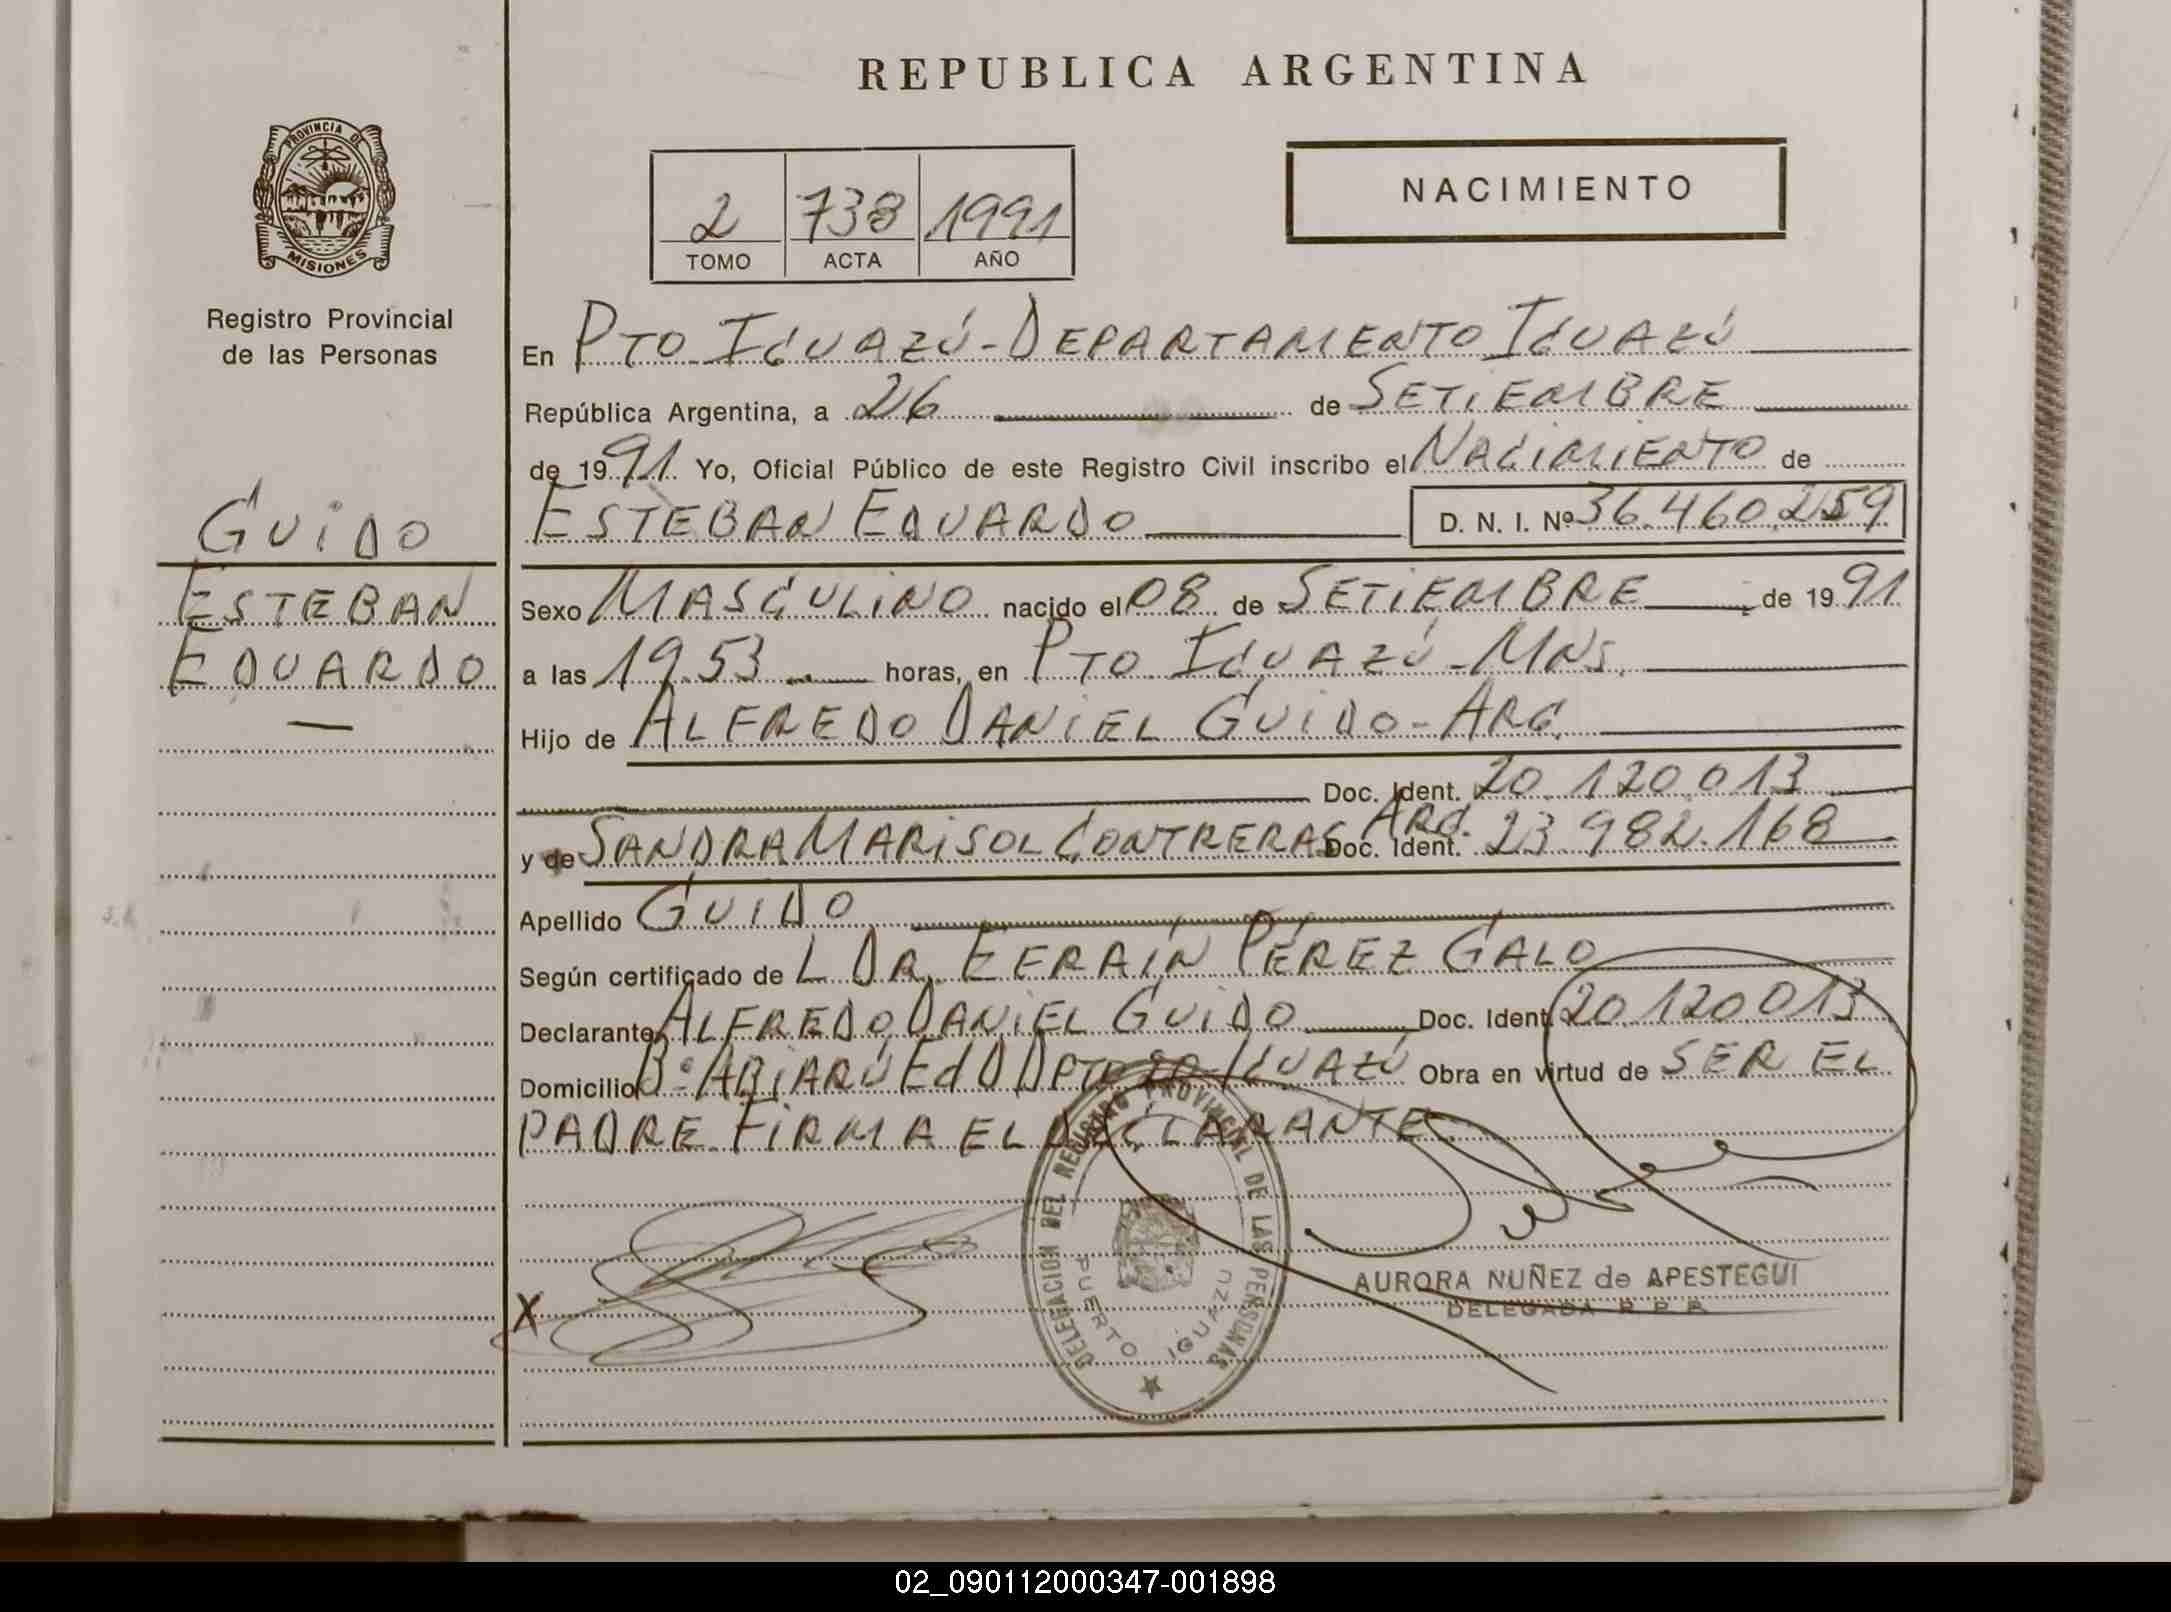 REPUBLICA ARGENTINA
PROVINCIA DE MISIONES
Registro Provincial
de las Personas
2 738 1991
TOMO ACTA AÑO
NACIMIENTO
GUIDO
ESTEBAN
EDUARDO
En PTO IGUAZÚ - DEPARTAMENTO IGUAZÚ
República Argentina, a 26 de SETIEMBRE
de 1991 Yo, Oficial Público de este Registro Civil inscribo el NACIMIENTO de
ESTEBAN EDUARDO D. N. I. Nº 36.460.259
Sexo MASCULINO nacido el 08 de SETIEMBRE de 1991
a las 19.53 horas, en PTO IGUAZÚ - MNS.
Hijo de ALFREDO DANIEL GUIDO - ARG.
Doc. Ident. 20.120.013
y de SANDRA MARISOL CONTRERAS ARG. Doc. Ident. 23.982.168
Apellido GUIDO
Según certificado de L DR. EFRAÍN PÉREZ GALO
Declarante ALFREDO DANIEL GUIDO Doc. Ident. 20.120.013
Domicilio Bº ARIARÚ Ed D DPTO IGUAZÚ Obra en virtud de SER EL
PADRE. FIRMA EL DECLARANTE
DELEGACION DEL REGISTRO PROVINCIAL DE LAS PERSONAS
PUERTO IGUAZU
X
AURORA NUÑEZ de APESTEGUI
DELEGADA R. P. P.
02_090112000347-001898